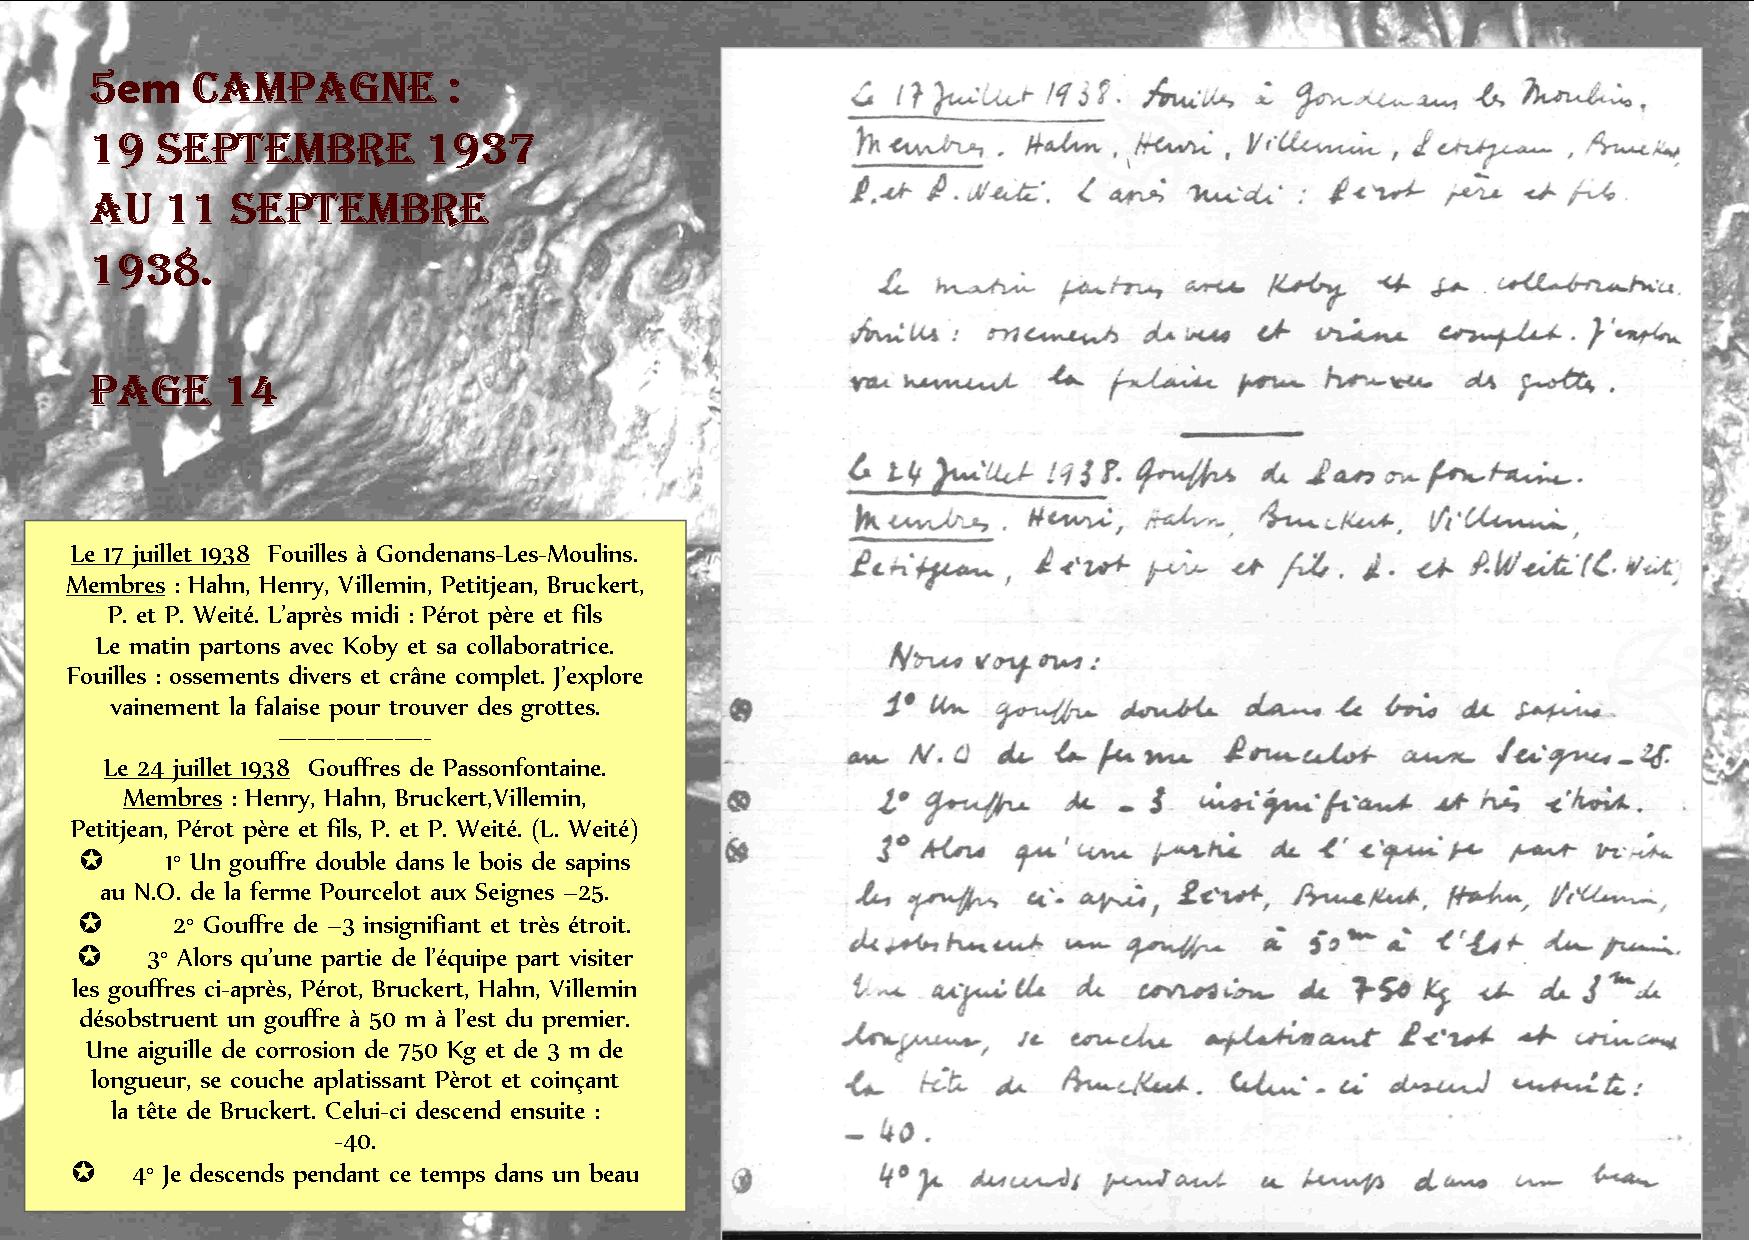 5em CAMPAGNE :
19 SEPTEMBRE 1937
AU 11 SEPTEMBRE
1938.
PAGE 14
Le 17 juillet 1938 Fouilles à Gondenans-Les-Moulins.
Membres : Hahn, Henry, Villemin, Petitjean, Bruckert,
P. et P. Weité. L'après midi : Pérot père et fils
Le matin partons avec Koby et sa collaboratrice.
Fouilles : ossements divers et crâne complet. J'explore
vainement la falaise pour trouver des grottes.
————————-
Le 24 juillet 1938 Gouffres de Passonfontaine.
Membres : Henry, Hahn, Bruckert,Villemin,
Petitjean, Pérot père et fils, P. et P. Weité. (L. Weité)
✪ 1° Un gouffre double dans le bois de sapins
au N.O. de la ferme Pourcelot aux Seignes –25.
✪ 2° Gouffre de –3 insignifiant et très étroit.
✪ 3° Alors qu'une partie de l'équipe part visiter
les gouffres ci-après, Pérot, Bruckert, Hahn, Villemin
désobstruent un gouffre à 50 m à l'est du premier.
Une aiguille de corrosion de 750 Kg et de 3 m de
longueur, se couche aplatissant Pèrot et coinçant
la tête de Bruckert. Celui-ci descend ensuite :
-40.
✪ 4° Je descends pendant ce temps dans un beau
Le 17 Juillet 1938. Fouilles à Gondenans les Moulins.
Membres. Hahn, Henri, Villemin, Petitjean, Bruckert,
P. et P. Weité. L'après midi : Pérot père et fils.
Le matin partons avec Koby et sa collaboratrice.
Fouilles : ossements divers et crâne complet. J'explore
vainement la falaise pour trouver des grottes.
Le 24 Juillet 1938. Gouffres de Passonfontaine.
Membres. Henri, Hahn, Bruckert, Villemin,
Petitjean, Pérot père et fils. P. et P. Weité (L. Weité)
Nous voyons :
1° Un gouffre double dans le bois de sapins
au N.O de la ferme Pourcelot aux Seignes -25.
2° Gouffre de -3 insignifiant et très étroit.
3° Alors qu'une partie de l'équipe part visiter
les gouffres ci-après, Pérot, Bruckert, Hahn, Villemin,
désobstruent un gouffre à 50m à l'Est du premier.
Une aiguille de corrosion de 750 Kg et de 3m de
longueur, se couche aplatissant Pérot et coinçant
la tête de Bruckert. Celui-ci descend ensuite :
- 40.
4° Je descends pendant ce temps dans un beau